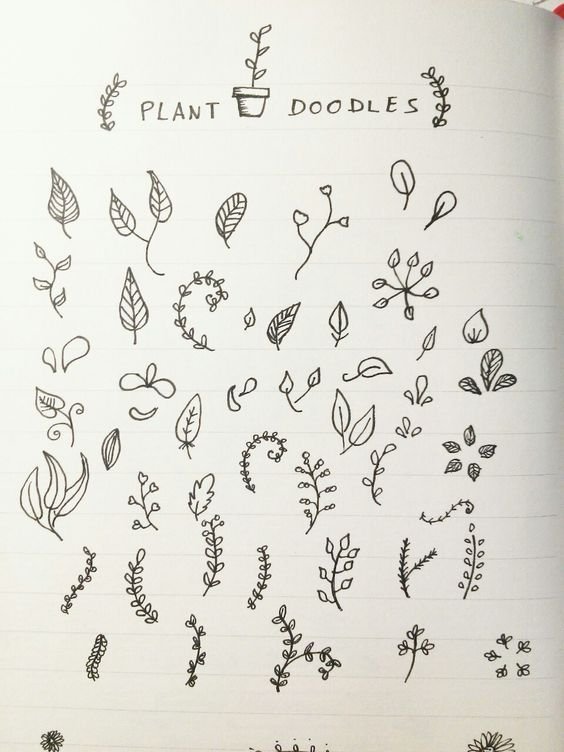 PLANT DOODLES